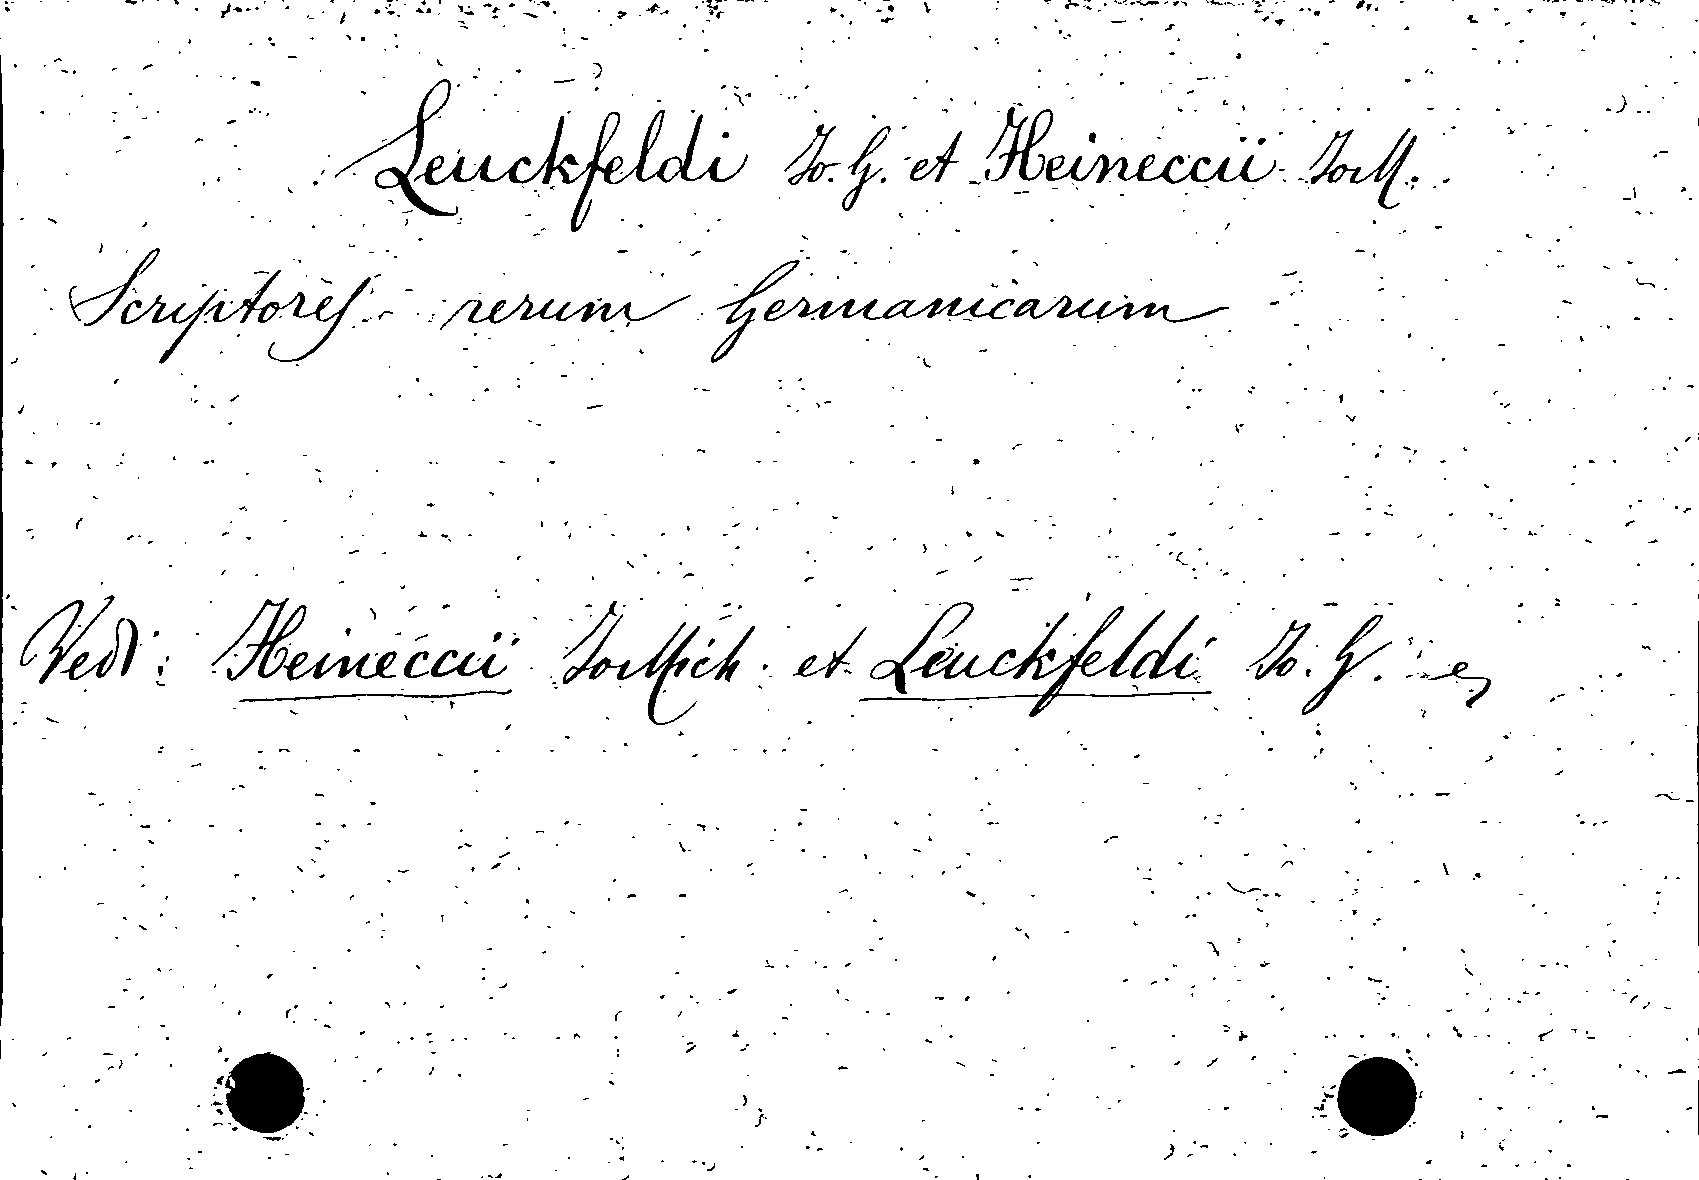 Leuckfeldi Jo. G. et Heineccii Jo. M.
Scriptores rerum Germanicarum
Vedi: Heineccii Jo. Mich. et Leuckfeldi Jo. G.